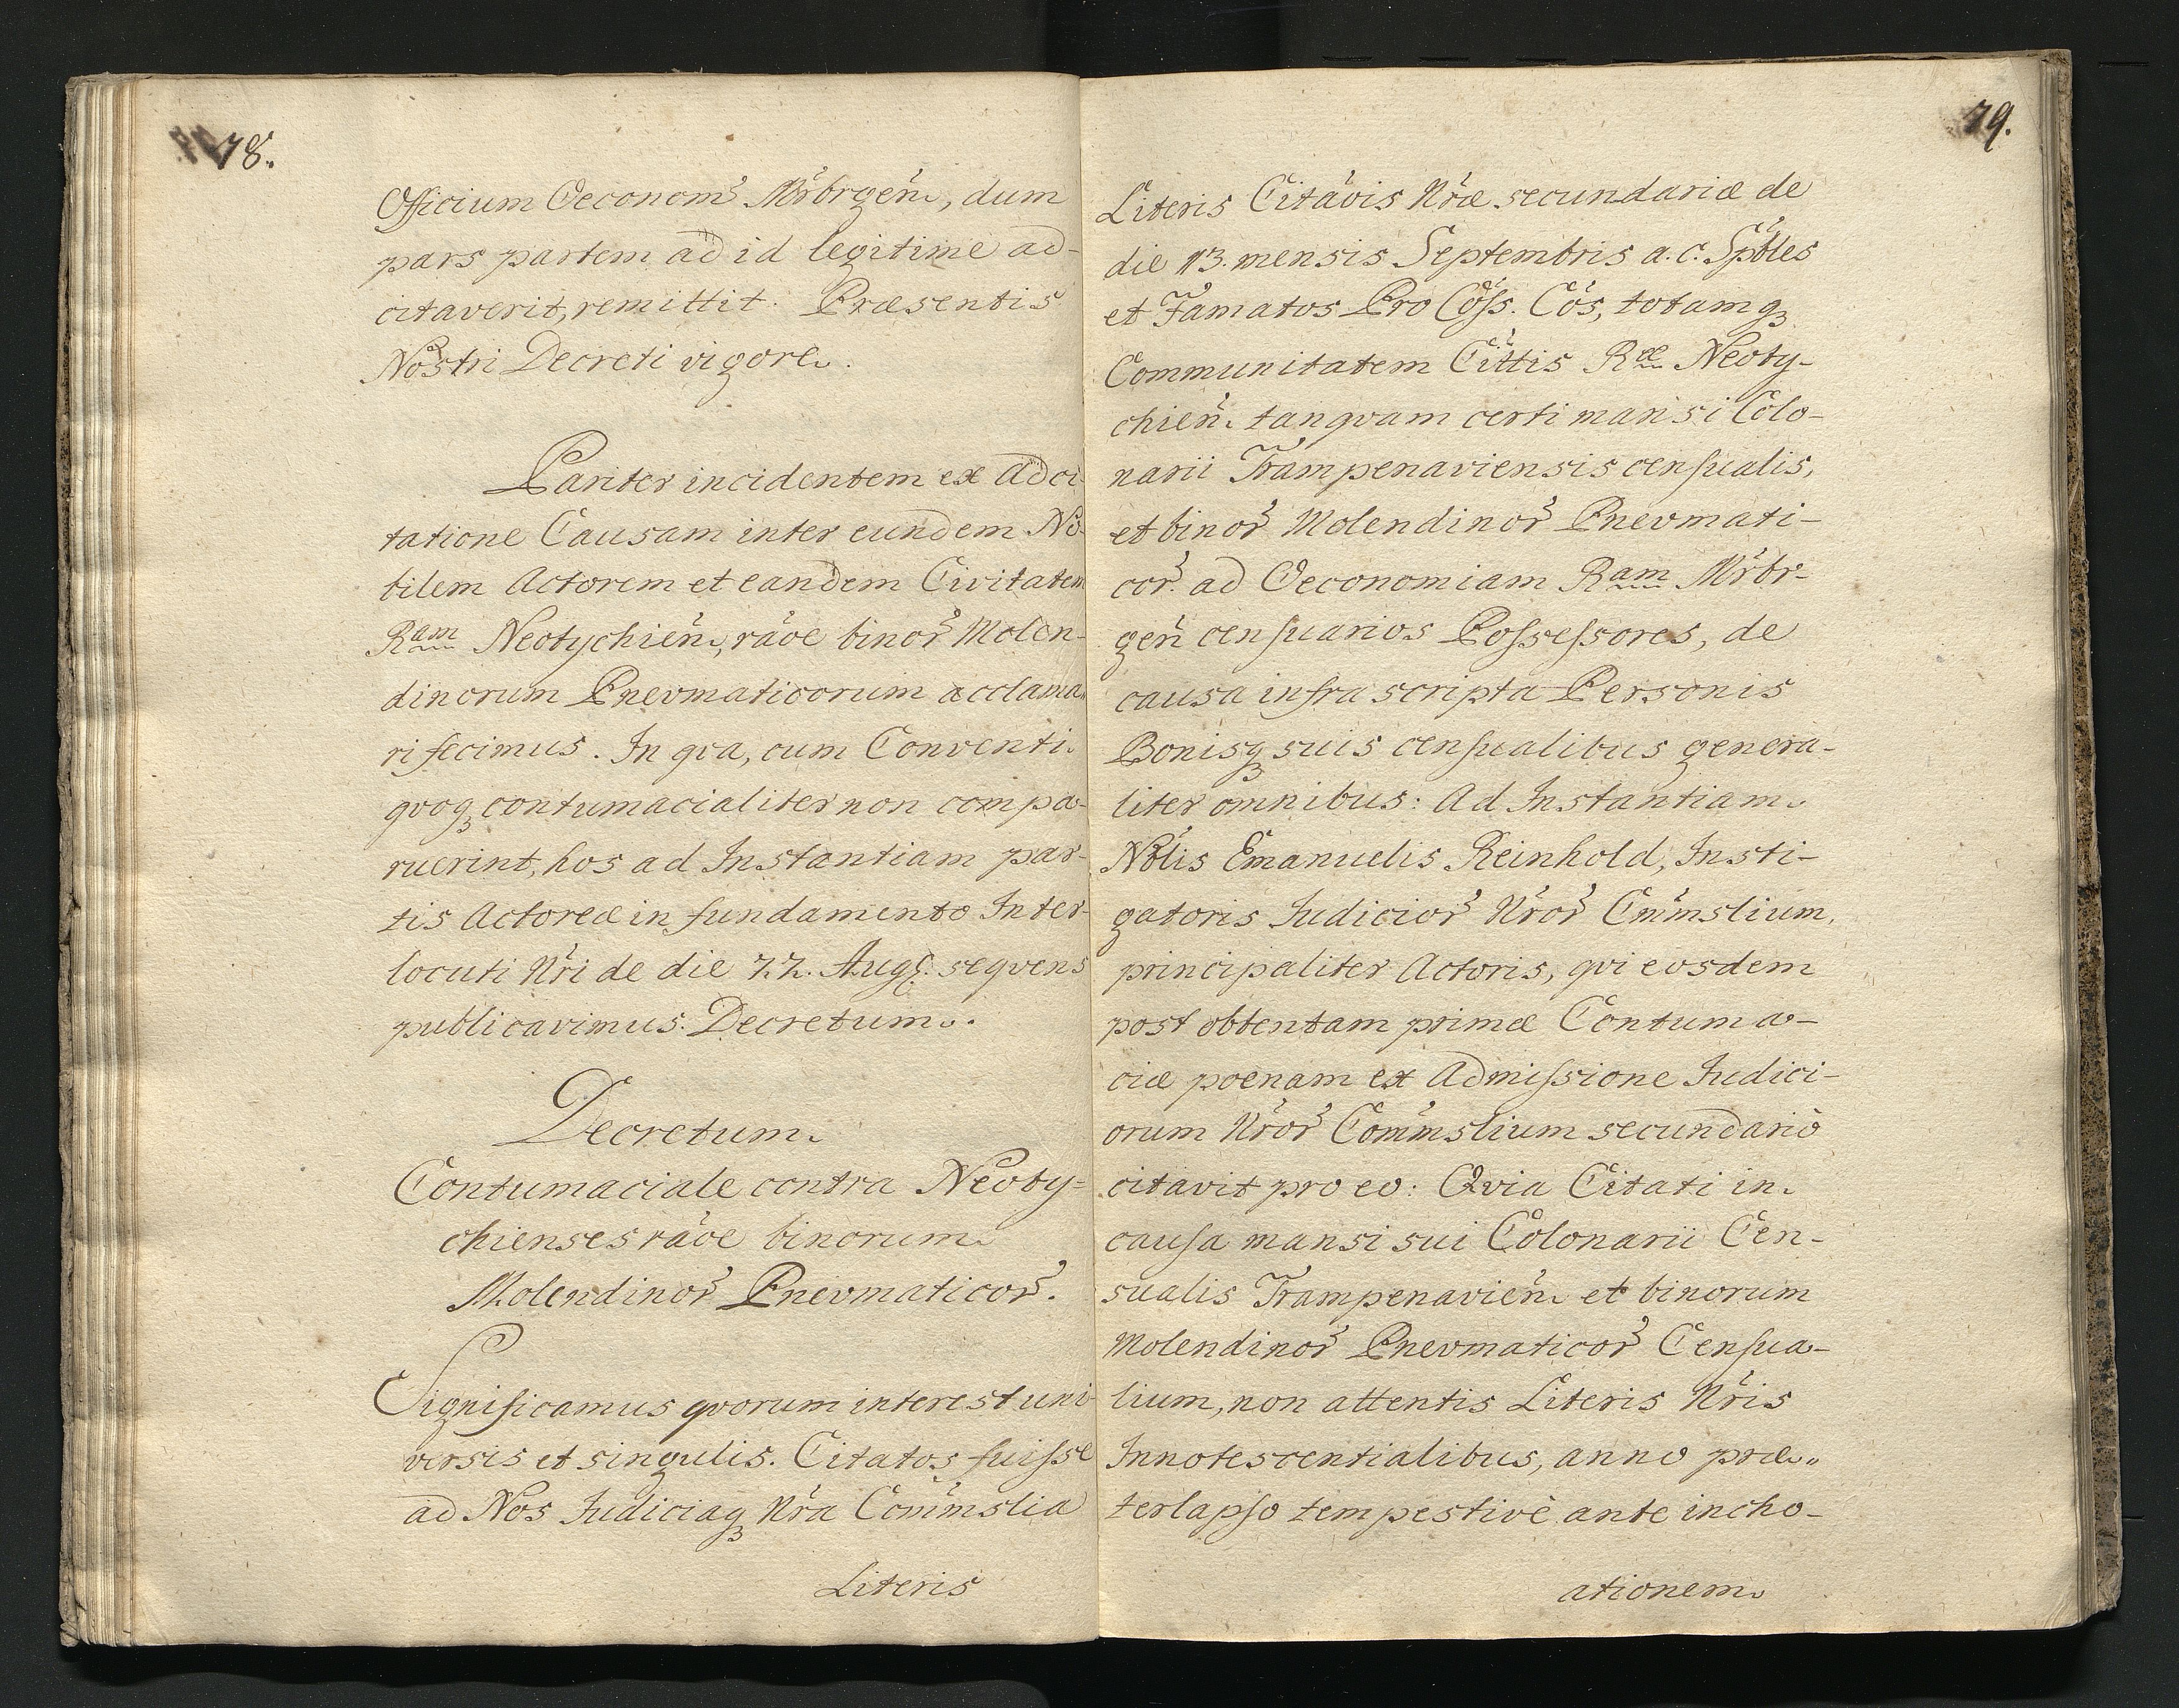 78.
Officium Oeconom̃ Mr̃brgen̄, dum
pars partem ad id legitime ad-
citaverit, remittit. Præsentis
Nostri Decreti vigore.
Pariter incidentem ex adci-
tatione Causam inter eundem No-
bilem Actorem et eandem Civitatem
Ram Neotychien̄, rãoe binor̃ Molen-
dinorum Pnevmaticorum acclama-
ri fecimus. In qva, cum Conventi
qvoqꝫ contumacialiter non compa-
ruerint, hos ad Instantiam par-
tis Actoreæ in fundamento Inter-
locuti Nr̃i de die 22. Augi. seqvens
publicavimus Decretum.
Decretum
Contumaciale contra Neoty-
chienses rãoe binorum
Molendinor̃ Pnevmaticor̃.
Significamus qvorum interest uni-
versis et singulis. Citatos fuiſse
ad Nos Judiciaqꝫ Nr̃a Com̃mslia
Literis
79.
Literis Citãois Nr̃æ secundariæ de
die 13. mensis Septembris a. c. Spb̃les
et Famatos Pro Cõſs. Cõs, totamqꝫ
Communitatem Citt̃is Ræ Neoty-
chien̄ tanqvam certi mansi Colo-
narii Trampenaviensis cenſualis,
et binor̃ Molendinor̃ Pnevmati-
cor̃ ad Oeconomiam Ram Mr̃br-
gen̄ cenſuarios Poſseſsores, de
causa infra scripta Personis
Bonisqꝫ suis cenſualibus genera-
liter omnibus: Ad Instantiam
Nõlis Emanuelis Reinhold, Insti-
gatoris Judicior̃ Nr̃or̃ Cm̃mslium,
principaliter Actoris, qvi eosdem
post obtentam primæ Contuma-
ciæ poenam ex Admiſsione Judici-
orum Nr̃or̃ Com̃mslium secundariò
citavit pro eo: Qvia Citati in
cauſa mansi sui Colonarii Cen-
sualis Trampenavien̄ et binorum
Molendinor̃ Pnevmaticor̃ Cenſua-
lium, non attentis Literis Nr̃is
Innotescentialibus, anno præ-
terlapſo tempestivè ante incho-
ationem